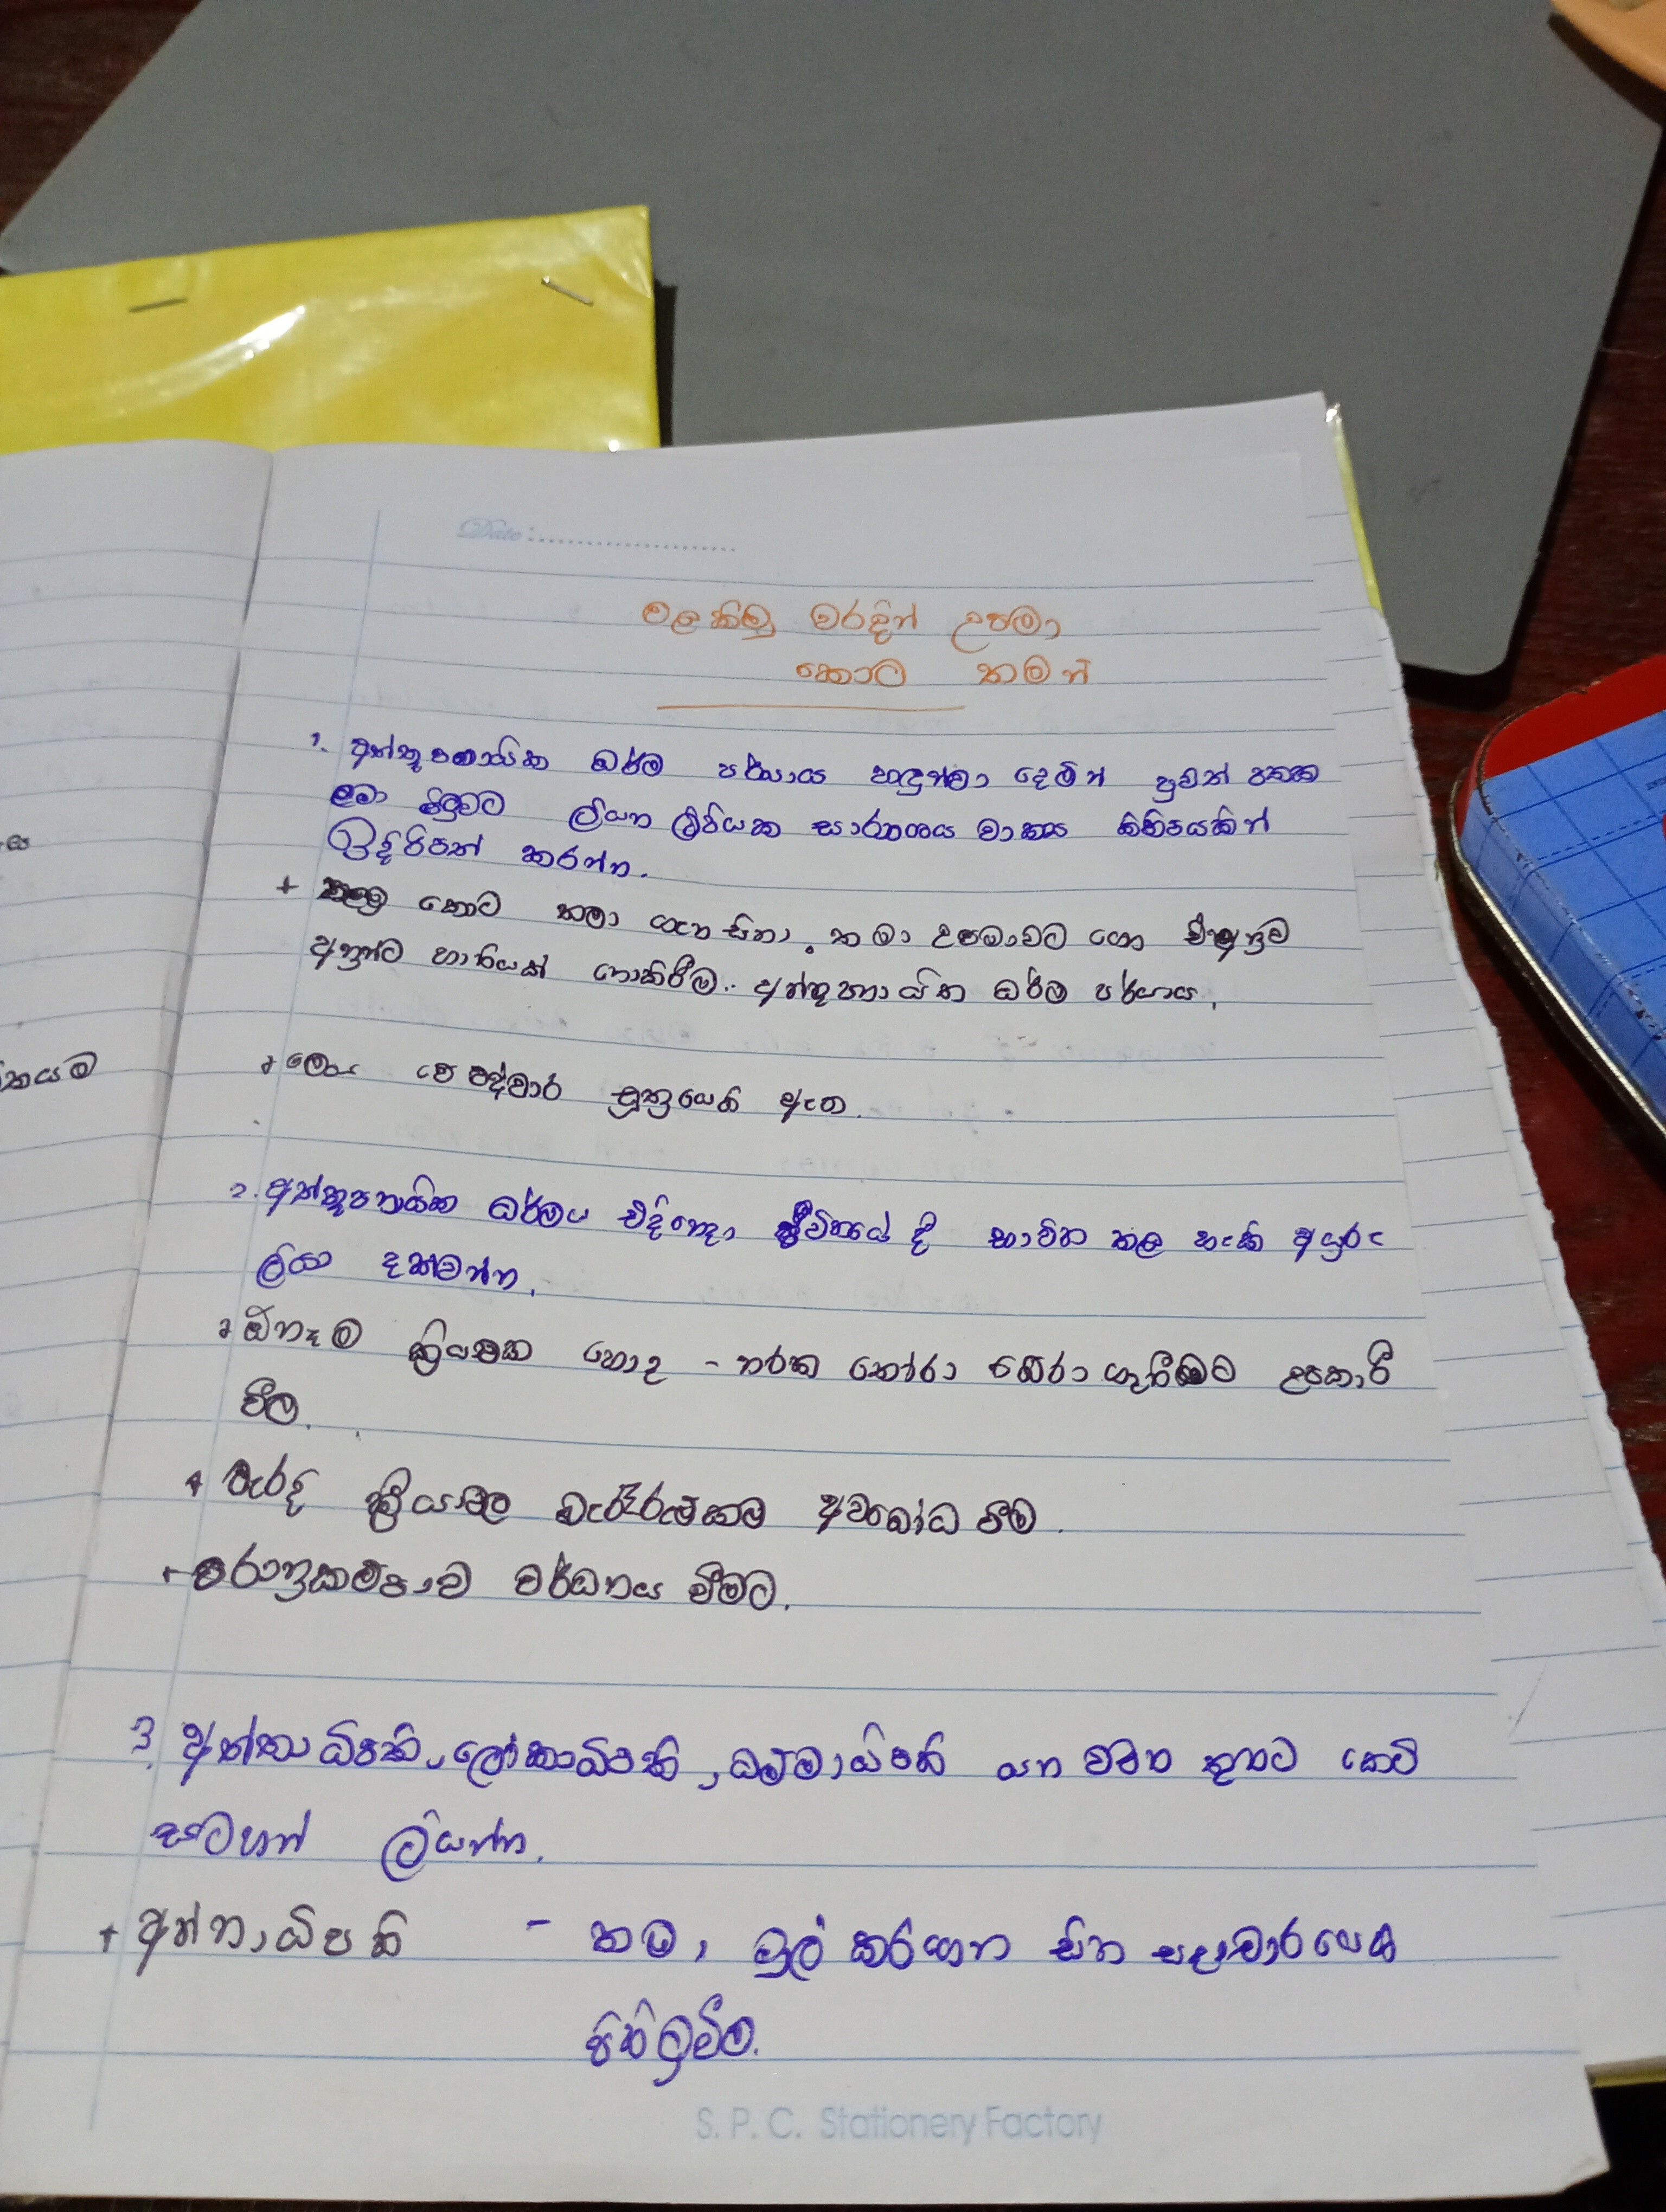 Date :
වලකිමු වරදින් උපමා
කොට තමන්
1. අත්තූපනායික ධර්ම පර්යාය හඳුන්වා දෙමින් පුවත් පතක
ළමා පිටුවට ලියන ලිපියක සාරාංශය වාක්‍ය කිහිපයකින්
ඉදිරිපත් කරන්න.
+ කොට තමා ගැන සිතා, තමා උපමාවට ගෙන
අනුන්ට හානියක් නොකිරීම.. අත්තූපනායික ධර්ම පර්යාය.
+ මෙය වේළුද්වාර සූත්‍රයෙහි ඇත.
2. අත්තූපනායික ධර්මය එදිනෙදා ජීවිතයේ දී භාවිත කල හැකි අයුරු
ලියා දක්වන්න.
+ ඕනෑම ක්‍රියාවක හොඳ - නරක තෝරා බේරා ගැනීමට උපකාරී
වීම.
+ වැරදි ක්‍රියාවල බැරෑරුම්කම අවබෝධ වීම.
+ පරානුකම්පාව වර්ධනය වීමට.
3. අත්තාධිපති, ලෝකාධිපති, ධම්මාධිපති යන වචන තුනට කෙටි
සටහන් ලියන්න.
+ අත්තාධිපති - තමා මුල් කරගෙන සිත සදාචාරයෙහි
පිහිටුවීම.
ස
තියම
S. P. C. Stationery Factory